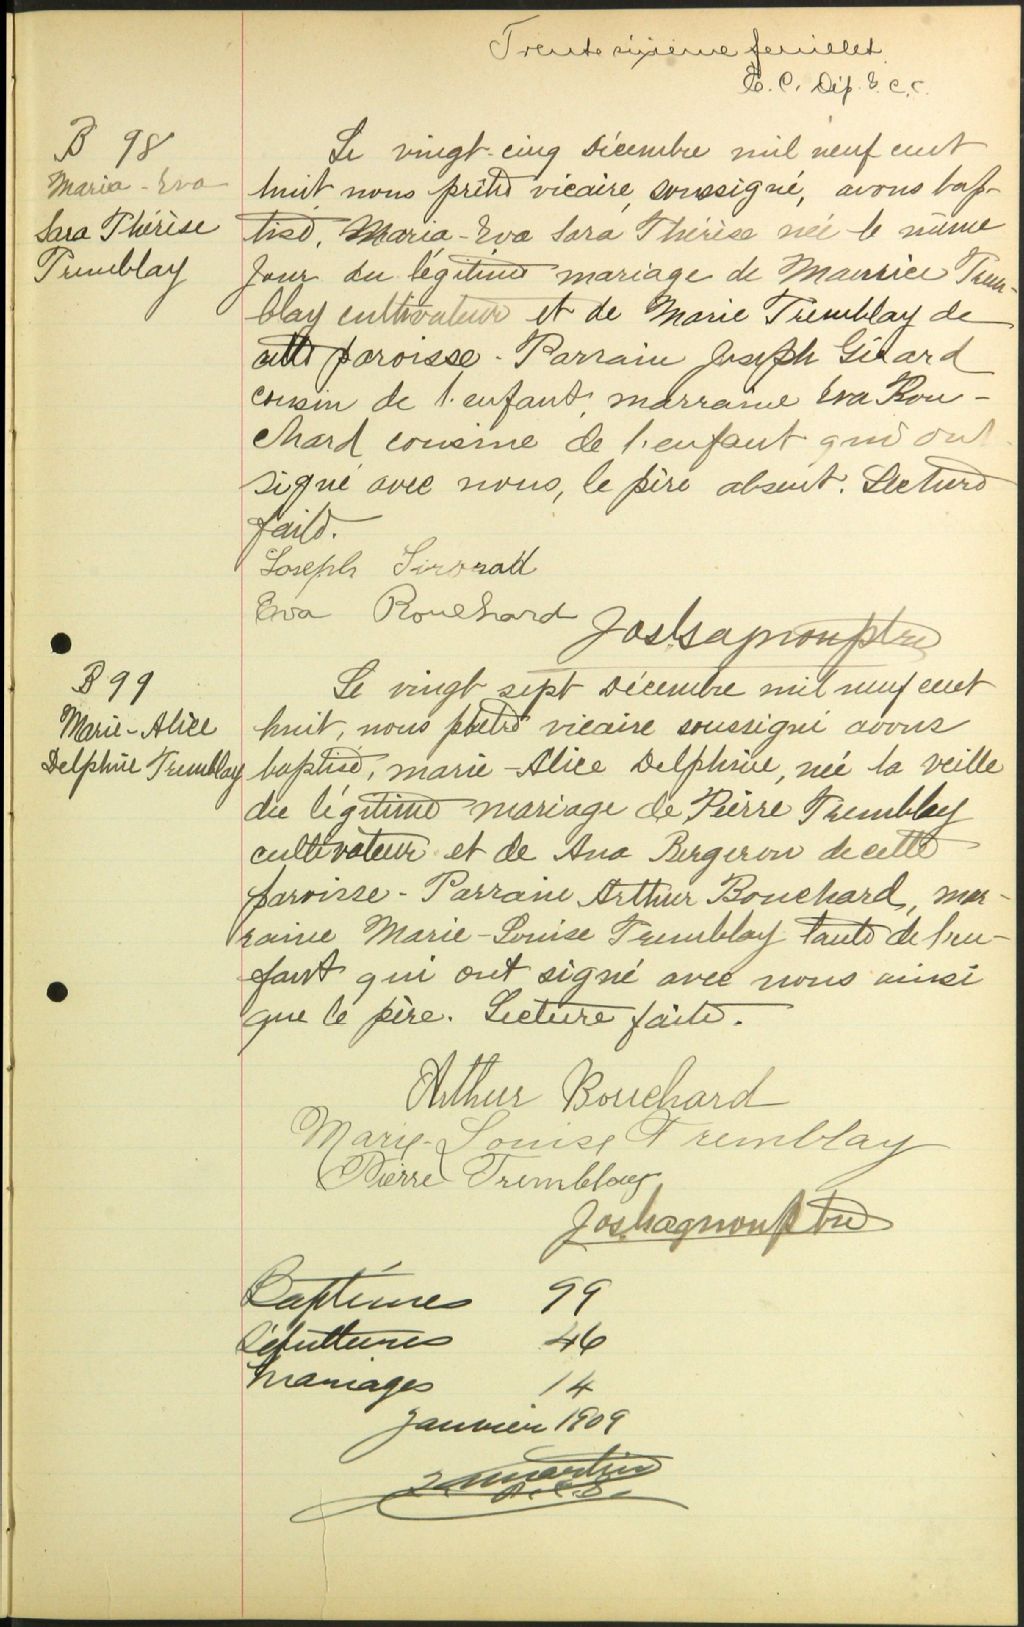 Trente sixième feuillet
E. C. Dép. G. C. C.
B 98
Maria-Eva
Sara Thérèse
Tremblay
Le vingt-cinq Décembre mil neuf cent
huit nous prêtre vicaire, soussigné, avons bap-
tisé, Maria-Eva Sara Thérèse née le même
jour du légitime mariage de Maurice Trem-
blay cultivateur et de Marie Tremblay de
cette paroisse - Parrain Joseph Girard
cousin de l'enfant, marraine Eva Bou-
chard cousine de l'enfant qui ont
signé avec nous, le père absent. Lecture
faite.
Joseph Girard
Eva Bouchard
Jos. Gagnon ptre
B 99
Marie-Alice
Delphine Tremblay
Le vingt sept Décembre mil neuf cent
huit, nous prêtre vicaire soussigné avons
baptisé, marie-Alice Delphine, née la veille
du légitime mariage de Pierre Tremblay
cultivateur et de Ana Bergeron de cette
paroisse - Parrain Arthur Bouchard, mar-
raine Marie-Louise Tremblay tante de l'en-
fant qui ont signé avec nous ainsi
que le père. Lecture faite.
Arthur Bouchard
Marie-Louise Tremblay
Pierre Tremblay
Jos. Gagnon ptre
Baptêmes 99
Sépultures 46
Mariages 14
Janvier 1909